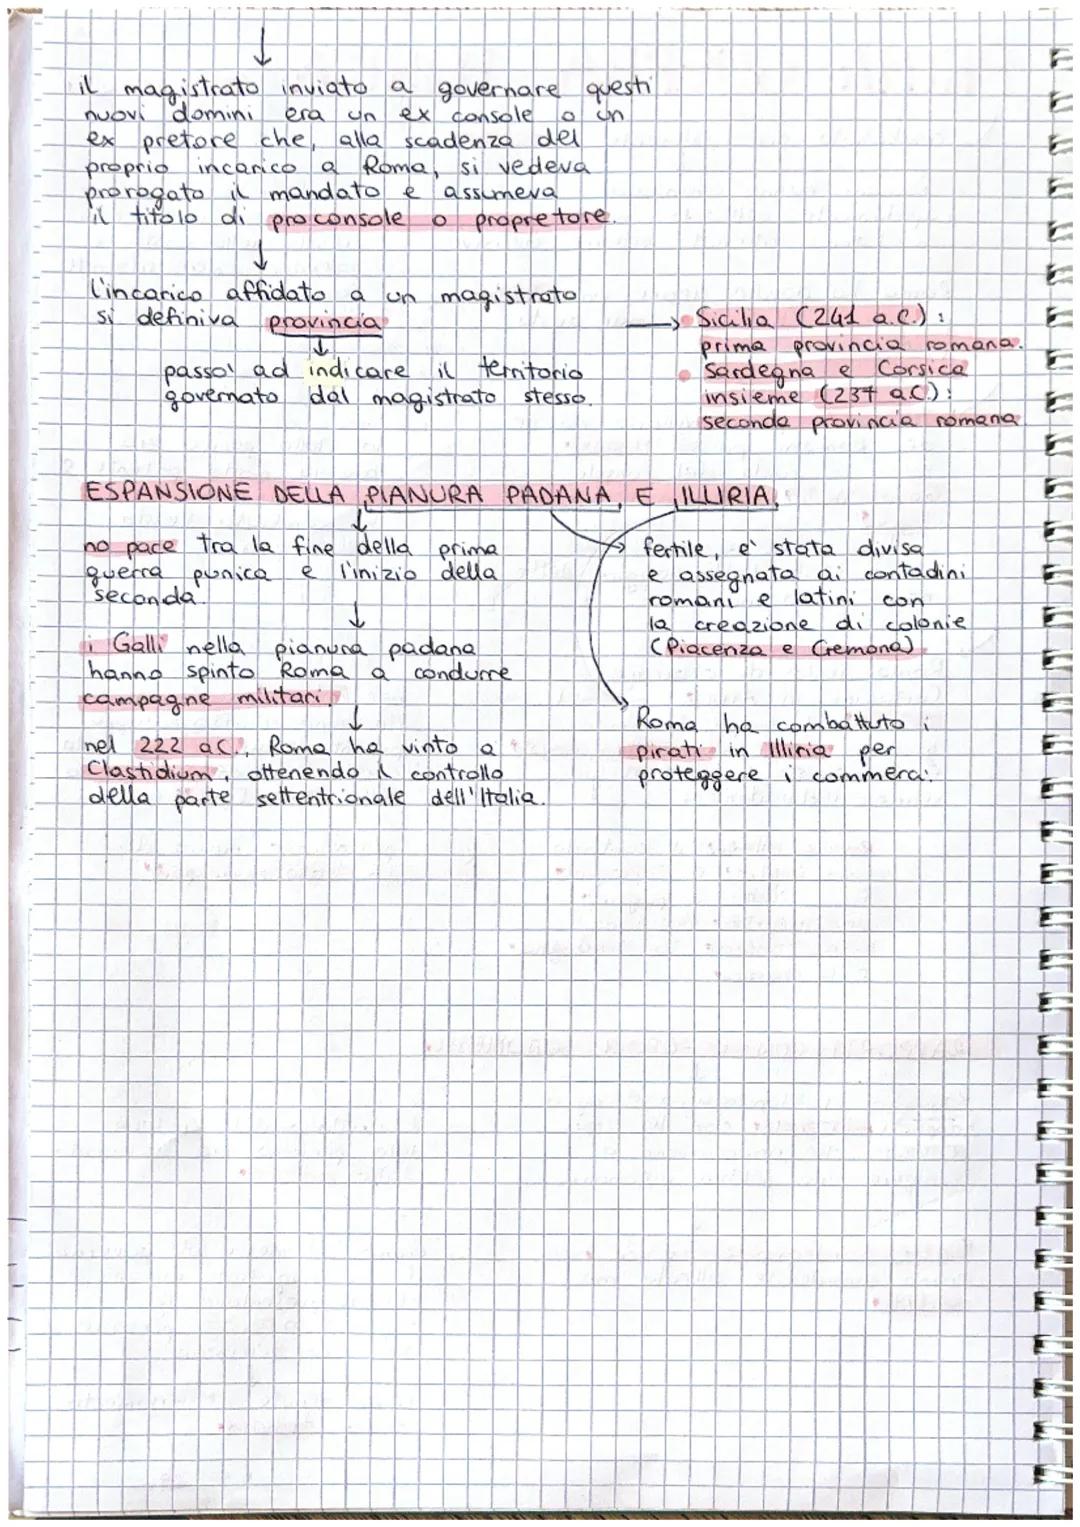 il magistrato inviato a governare questi
nuovi domini era un ex console o un
ex pretore che, alla scadenza del
proprio incarico a Roma, si vedeva
prorogato il mandato e assumeva
il titolo di proconsole o propretore.
l'incarico affidato a un magistrato
si definiva provincia
passo' ad indicare il territorio
governato dal magistrato stesso.
→ Sicilia (241 a.C.):
prima provincia romana.
Sardegna e Corsica
insieme (237 a.C.):
seconda provincia romana
ESPANSIONE DELLA PIANURA PADANA E ILLIRIA
no pace tra la fine della prima
guerra punica e l'inizio della
seconda.
i Galli nella pianura padana
hanno spinto Roma a condurre
campagne militari.
nel 222 a.C., Roma ha vinto a
Clastidium, ottenendo il controllo
della parte settentrionale dell'Italia.
fertile, e' stata divisa
e assegnata ai contadini
romani e latini con
la creazione di colonie
(Piacenza e Cremona)
Roma ha combattuto i
pirati in Illiria per
proteggere i commerci.